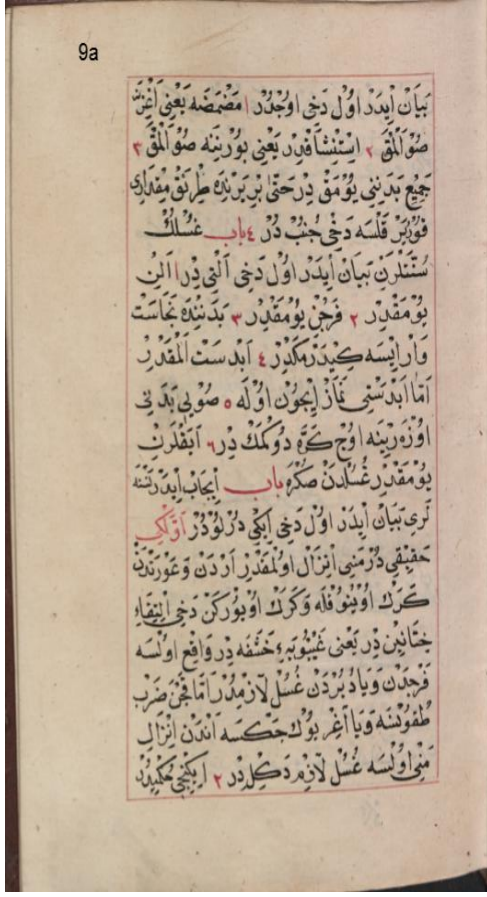 9a
بَيَانْ اِيدَرْ اوُلْ دَخِي اوُجْدُرْ ١ مَضْمَضَه يَعْنِي اَغْزِنَه
صُو اَلْمَقْ ٢ اِسْتِنْشَاقْدِرْ يَعْنِي بوُرْنِنَه صُو اَلْمَقْ ٣
جَمِيعِ بَدَنِنِي يوُمَقْ دِرْ حَتَّى بِرْ يَرِنْدَه طِرْنَقْ مِقْدَارِي
قوُرِيَرْ قَلْسَه دَخِي جُنُبْ دُرْ ٤ باب غُسْلُكْ
سُنَّتْلَرِنْ بَيَانْ اِيدَرْ اوُلْ دَخِي اَلْتِي دِرْ ١ اَلِنْ
يوُمَقْدِرْ ٢ فَرْجِنْ يوُمَقْدِرْ ٣ بَدَنِنْدَه نَجَاسَتْ
وَارْ اِيسَه كِيدَرْمَكْدِرْ ٤ اَبْدَسْتْ اَلْمَقْدِرْ
اَمَّا اَبْدَسْتِي نَمَازْ اِيچُونْ اوُلَه ٥ صُويِي بَدَنِي
اوُزَرِينَه اوُچْ كَرَّه دوُكْمَكْ دِرْ ٦ اَيَقْلَرِنْ
يوُمَقْدِرْ غُسْلْدَنْ صُكْرَه باب اِيجَابْ اِيدَرْ نَسْنَه
لَرِي بَيَانْ اِيدَرْ اوُلْ دَخِي اِيكِي دُرْلوُدُرْ اَوَّلْكِي
حَقِيقِي دُرْ مَنِي اِنْزَالْ اوُلْمَقْدِرْ اَرْدَنْ وَعَوْرَتْدَنْ
كَرَكْ اوُيَنُوقْلَه وَكَرَكْ اوُيوُرْكَنْ دَخِي اِلْتِقَاءِ
خِتَانَيْنْ دِرْ يَعْنِي غَيْبوُبَةِ حَشَفَه دِرْ وَاقِعْ اوُلْسَه
فَرْجْدَنْ وَيَا دُبُرْدَنْ غُسُلْ لَازِمْدُرْ اَمَّا قَچَنْ ضَرْبْ
طُقوُنْسَه وَيَا اَغِرْ يوُكْ چَكْسَه اَنْدَنْ اِنْزَالِ
مَنِي اوُلْسَه غُسُلْ لَازِمْ دَكِلْ دِرْ ٢ اِيكِنْجِي حُكْمِيدُرْ